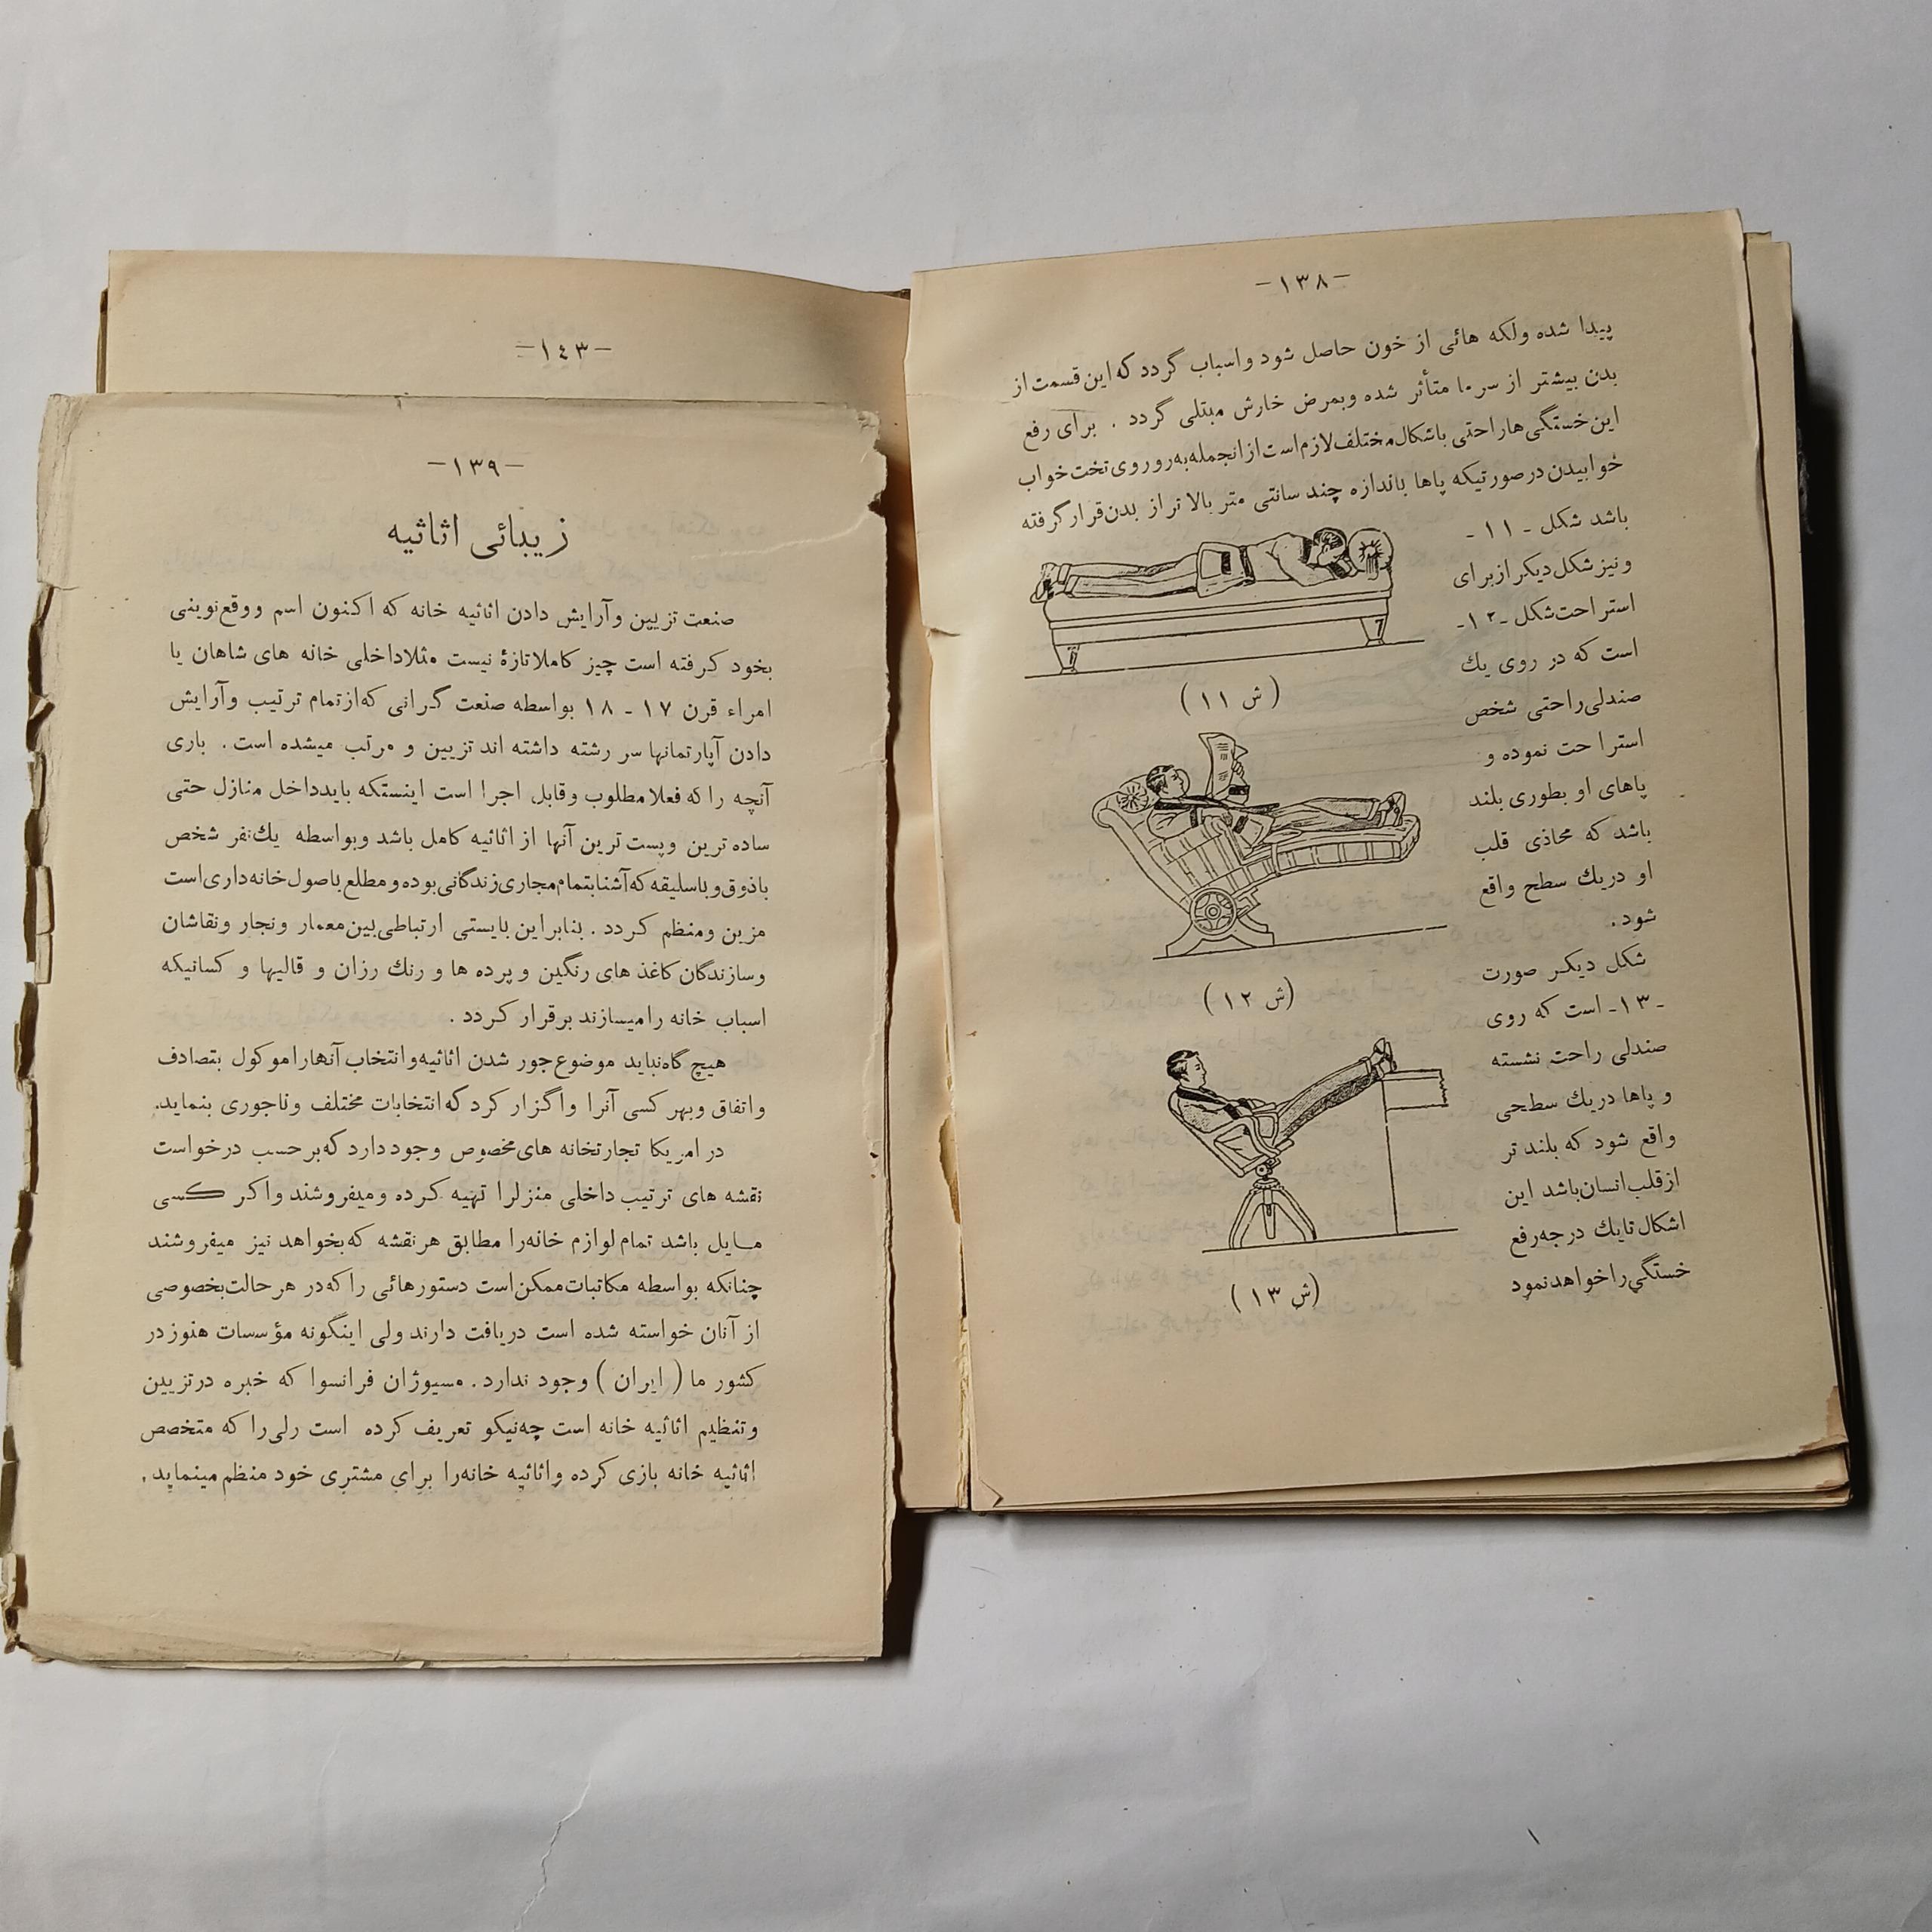 -١٣٨-
پیدا شده ولکه هائی از خون حاصل شود واسباب گردد که این قسمت از
بدن بیشتر از سرما متأثر شده وبمرض خارش مبتلی گردد . برای رفع
این خستگی‌ها راحتی باشکال مختلف لازم است از انجمله به‌رو روی تخت خواب
خوابیدن در صورتیکه پاها باندازه چند سانتی متر بالا تر از بدن قرار گرفته
باشد شکل ـ ١١ ـ
و نیز شکل دیگر از برای
استراحت شکل ـ ١٢ ـ
است که در روی یك
صندلی راحتی شخص
استراحت نموده و
پاهای او بطوری بلند
باشد که محاذی قلب
او دریك سطح واقع
شود.
شکل دیگر صورت
ـ ١٣ ـ است که روی
صندلی راحت نشسته
و پاها دریك سطحی
واقع شود که بلند تر
از قلب انسان باشد این
اشکال تایك درجه رفع
خستگی را خواهد نمود
(ش ١١)
(ش ١٢)
(ش ١٣)
-١٤٣-
-١٣٩-
زیبائی اثاثیه
صنعت تزیین وآرایش دادن اثاثیه خانه که اکنون اسم ووقع نوینی
بخود گرفته است چیز کاملا تازهٔ نیست مثلا داخلی خانه های شاهان یا
امراء قرن ١٧ ـ ١٨ بواسطه صنعت گرانی که از تمام ترتیب وآرایش
دادن آپارتمانها سر رشته داشته اند تزیین و مرتب میشده است . باری
آنچه را که فعلا مطلوب وقابل اجرا است اینستکه باید داخل منازل حتی
ساده ترین وپست ترین آنها از اثاثیه کامل باشد وبواسطه یك نفر شخص
با ذوق و با سلیقه که آشنا بتمام مجاری زندگانی بوده و مطلع باصول خانه داری است
مزین ومنظم گردد . بنابراین بایستی ارتباطی بین معمار ونجار ونقاشان
وسازندگان کاغذ های رنگین و پرده ها و رنك رزان و قالیها و کسانیکه
اسباب خانه را میسازند برقرار گردد .
هیچ گاه نباید موضوع جور شدن اثاثیه وانتخاب آنها را موکول بتصادف
واتفاق وبهر کسی آنرا واگزار کرد که انتخابات مختلف وناجوری بنماید.
در امریکا تجارتخانه های مخصوص وجود دارد که برحسب درخواست
نقشه های ترتیب داخلی منزلرا تهیه کرده ومیفروشند واگر کسی
مایل باشد تمام لوازم خانه را مطابق هر نقشه که بخواهد نیز میفروشند
چنانکه بواسطه مکاتبات ممکن است دستورهائی را که در هر حالت بخصوصی
از آنان خواسته شده است دریافت دارند ولی اینگونه مؤسسات هنوز در
کشور ما ( ایران ) وجود ندارد . مسیوژان فرانسوا که خبره در تزیین
وتنظیم اثاثیه خانه است چه نیکو تعریف کرده است رلی را که متخصص
اثاثیه خانه بازی کرده و اثاثیه خانه را برای مشتری خود منظم مینماید.